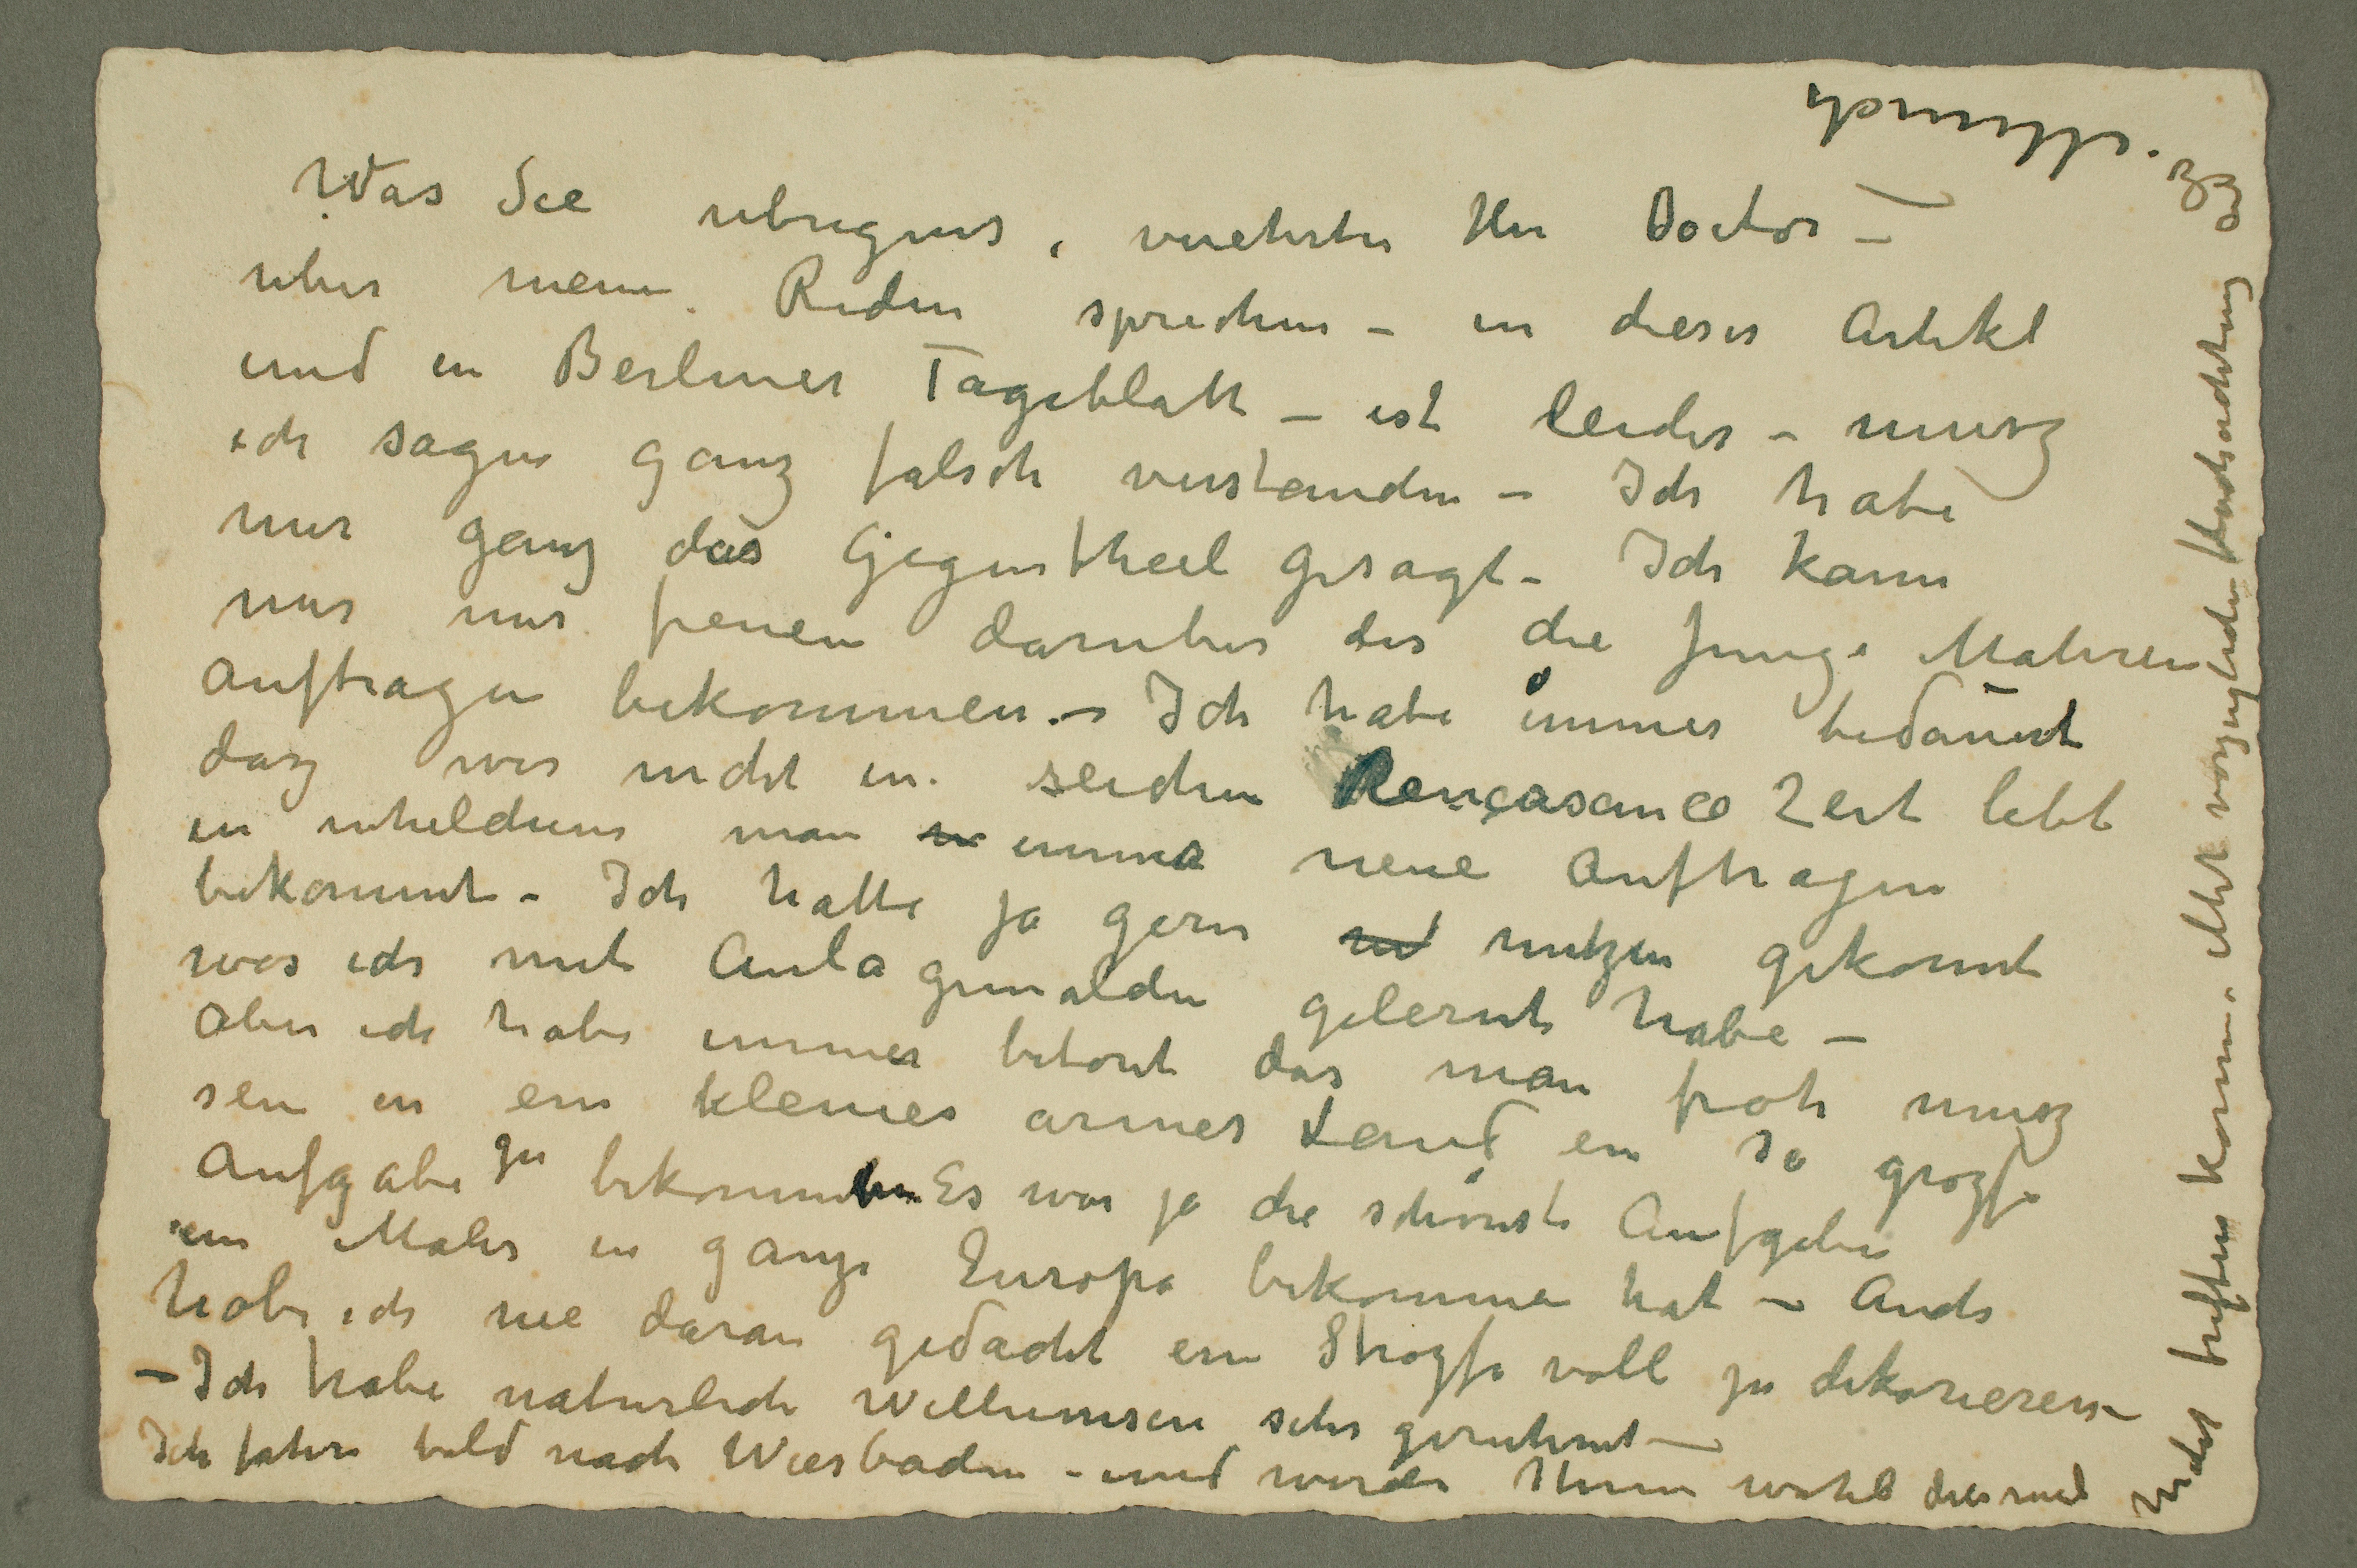 Was Sie ubrigens, verehrter Herr Doctor –
uber meine Reden sprechen – in dieser Artikel
und in Berliner Tageblatt – ist leider – musz
ich sagen ganz falsch verstanden – Ich habe
nur ganz das Gegentheil gesagt – Ich kann
nur mir freuen daruber das die junge Mahrer
auftragen bekommen. – Ich habe immer bedauert
dasz wir nicht in reichen Rençasance Zeit lebt
in whelchem man immer neue auftragen
bekommt – Ich hatte ja gern nutzen gekonnt
was ich mit Aula gemalden gelernt habe –
aber ich habe immer betont das man froh musz
sein in ein kleines armes Land ein so grozse
aufgabe zu bekommen Es war ja die schönste Aufgabe
ein Maler in ganze Europa bekommen hat – Auch
habe ich nie daran gedacht ein Strozse voll zu dekorieren –
– Ich habe naturlich Willumsen sehr geruhmt –
Ich fahre bald nach Wiesbaden – und werde Ihnen wohl diesmal
vielleicht treffen konnen. Mit vorzuglichen Hochachtung
E. Munch